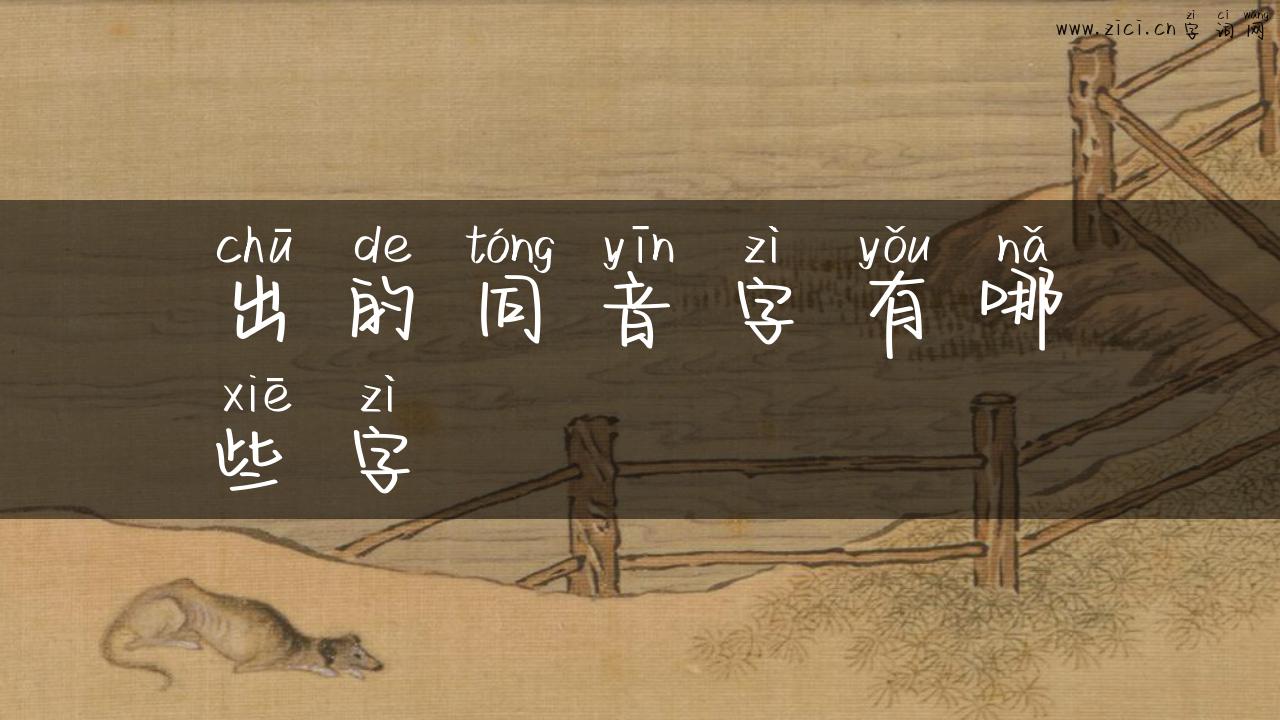 zi ci wang
www.zici.cn 字词网
chū de tóng yīn zì yǒu nǎ
出的同音字有哪
xiē zì
些字